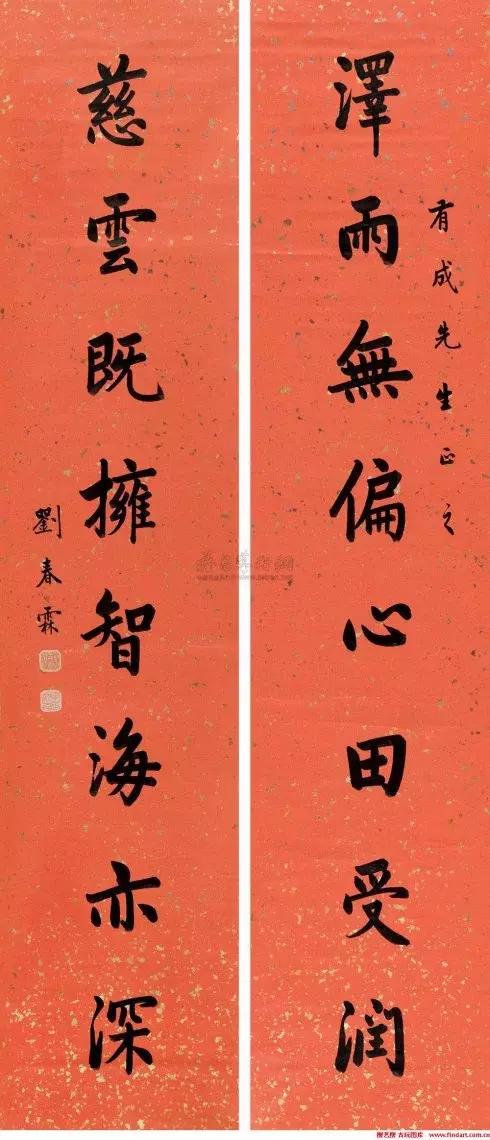 有成先生正之
澤雨無偏心田受潤
慈雲既擁智海亦深
劉春霖
搜艺搜 古玩图库 www.findart.com.cn